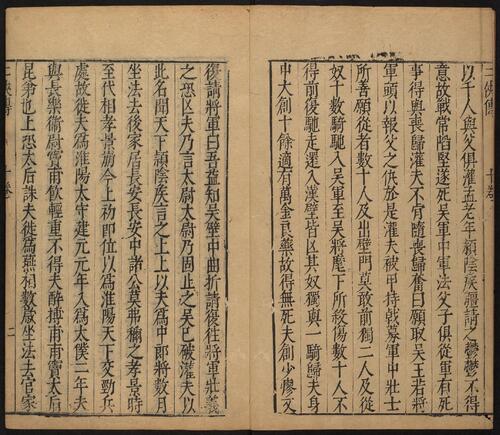 以千人與父俱灌孟老年頴陰矦彊請之鬱鬱不得
意故戰常陷堅遂死吴軍中軍法父子俱從軍有死
事得與丧歸灌夫不肯隨喪歸奮曰願取吴王若將
軍頭以報父之仇於是灌夫被甲持戟募軍中壮士
所善願從者數十人及出壁門莫敢前獨二人及從
奴十數騎馳入吴軍至吴將麾下所殺傷數十人不
得前復馳走還入漢壁皆亾其奴獨與一騎歸夫身
中大創十餘適有萬金良藥故得無死夫創少瘳又
復請將軍曰吾益知吴壁中曲折請復往將軍壮義
之恐亾夫乃言太尉太尉乃固止之吴已破灌夫以
此名聞天下頴陰矦言之上上以夫為中郎將數月
坐法去後家居長安長安中諸公莫弗稱之孝景時
至代相孝景崩今上初即位以為淮陽天下交勁兵
處故徙夫為淮陽太守建元元年入為太僕二年夫
與長樂衛尉竇甫飲輕重不得夫醉搏甫甫竇太后
昆弟也上恐太后誅夫徙為燕相數歲坐法去官家
二